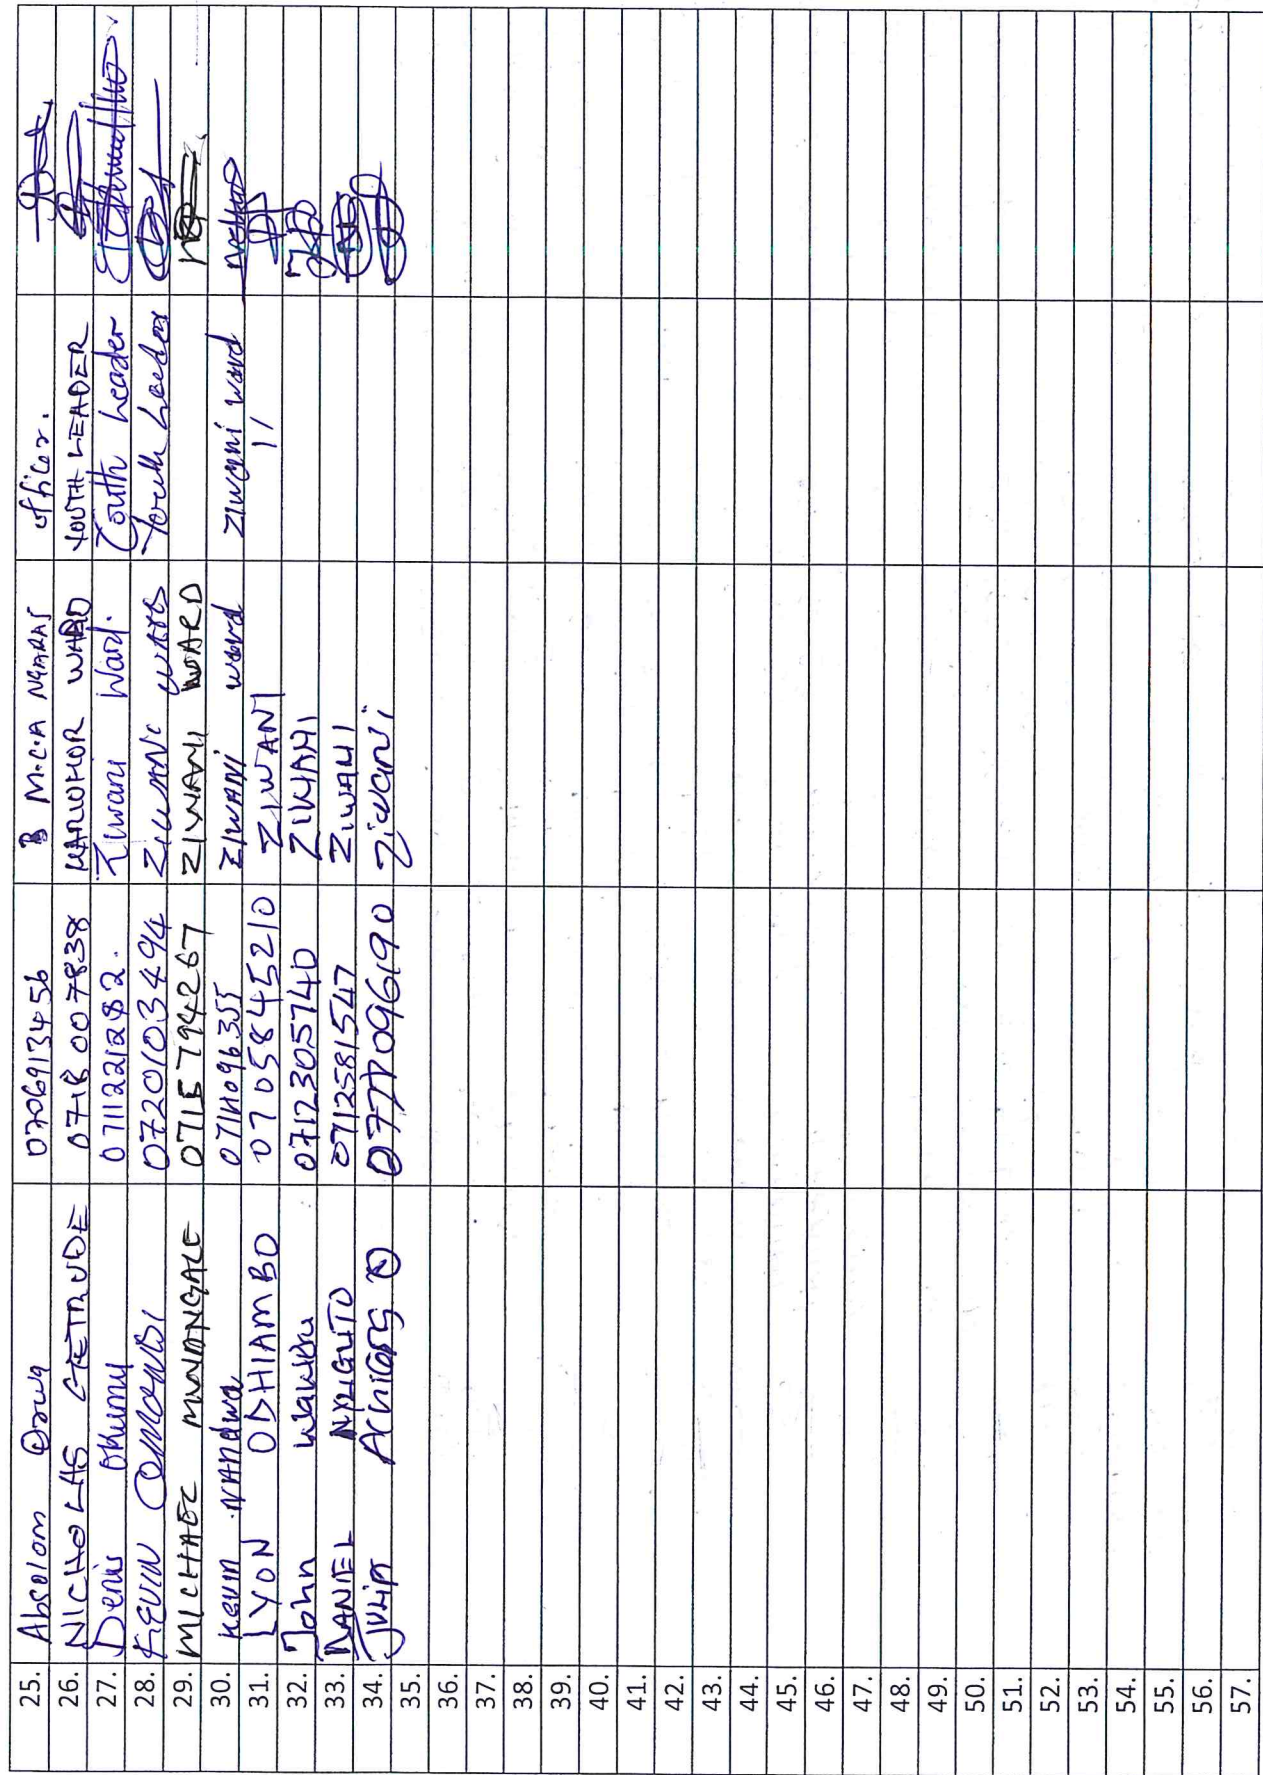 25. Absolom 0706913456 B M.C.A NGARAS officer.
26. NICHOLAS GETRUDE 0718007838 WARD YOUTH LEADER
27. Denis Okumu 0711221282. Ziwani Ward. Youth Leader
28. KEVIN OMONDI 0720103494 ZIWANI WARD Youth Leader
29. MICHAEL 0715794267 ZIWANI WARD
30. Kevin NANdwa ZIWANI ward ZIWANI ward
31. LYON ODHIAMBO 0705845210 ZIWANI 11
32. John 0712305740 ZIWANI
33. DANIEL 0712581547 ZIWANI
34. Achieng Ziwani
35.
36.
37.
38.
39.
40.
41.
42.
43.
44.
45.
46.
47.
48.
49.
50.
51.
52.
53.
54.
55.
56.
57.